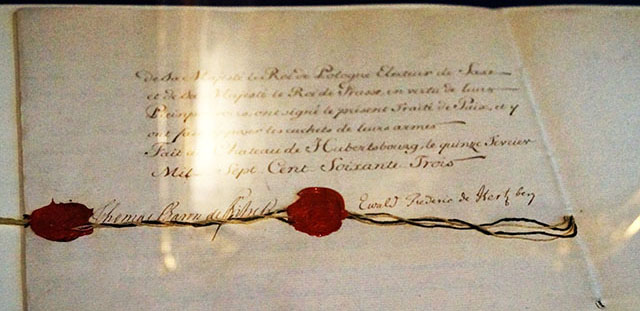 de Sa Majesté le Roi de Pologne Electeur de Saxe
et de Sa Majesté le Roi de Prusse, en vertu de leurs
ont signé le présent Traité de Paix, et y
ont les cachets de leurs armes
Fait Chateau de Hubertsbourg, le quinze Fevrier
Mil Sept Cent Soixante Trois
Thomas Baron de
Ewald Frederic de Hertzberg